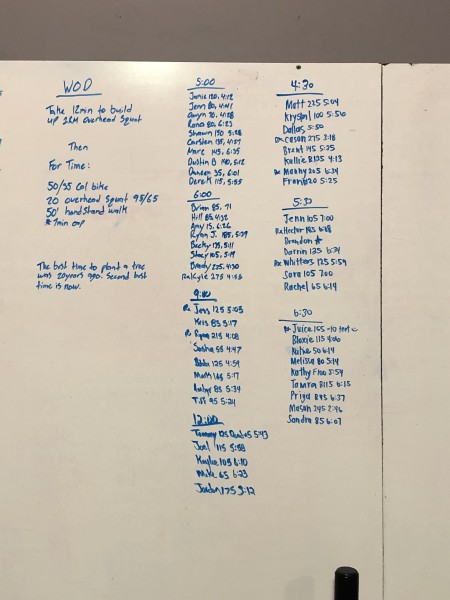 WOD
Take 12min to build
up 1RM Overhead Squat
Then
For Time:
50/35 Cal bike
20 overhead squat 95/65
50' handstand walk
*7min cap
The best time to plant a tree
was 20years ago. Second best
time is now.
5:00
Jamie 120, 4:12
Jenn 80, 4:41
Gwyn 70, 4:28
Rena 80, 6:23
Shawn 150 5:28
Carsten 135, 4:57
Marc 145, 6:35
Dustin B 140, 5:12
Doreen 35, 6:01
Derek 115, 5:55
6:00
Brian 85, 71
Hill 85 4:32
Amy 15, 6:26
Ryan J. 185, 5:29
Becky 125, 5:11
Stacy 105, 5:19
Brady 225, 4:30
Kyle 275 4:58
9:00
Rx Jess 125 5:03
Kris 83 5:17
Ryan 215 4:08
Sasha 55 4:47
125 4:54
Mark 165 5:17
83 5:34
95 5:24
12:00
Tammy 125 5:43
Joel 115 5:58
Kaylie 103 6:10
Mike 65 6:23
Jordan 175 5:12
4:30
Matt 225 5:04
Krystal 100 5:50
Dallas 5:50
Rx Cason 275 3:18
Brent 145 5:25
Kallie 125 4:13
Rx Manny 205 6:34
Frank 120 5:25
5:30
Jenn 105 7:00
Rx Hector 185 6:18
Brandon *
Darrin 125 6:34
Rx Whitters 125 5:59
Sara 105 7:00
Rachel 65 6:14
6:30
Rx Juice 155
Blaxie 115 4:00
Katie 50 6:14
Melissa 80 5:14
Kathy F 100 5:54
Tamra 115 6:15
Priya 85 6:37
Mason 245 2:46
Sandra 85 6:07